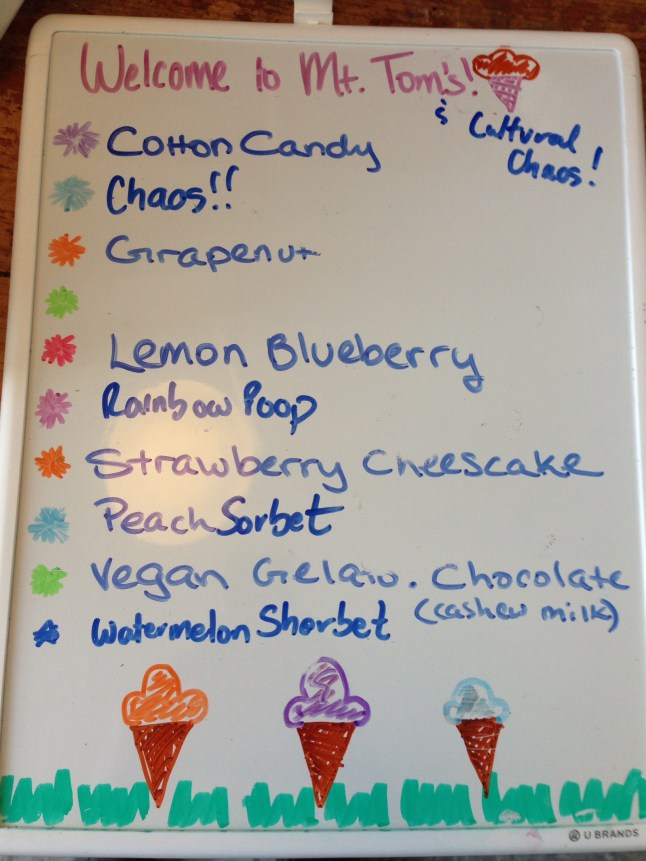 Welcome to Mt. Tom's!
& Cultural
Chaos!
Cotton Candy
Chaos!!
Grapenut
Lemon Blueberry
Rainbow Poop
Strawberry Cheescake
Peach Sorbet
Vegan Gelato. Chocolate
(cashew milk)
Watermelon Sherbet
U BRANDS